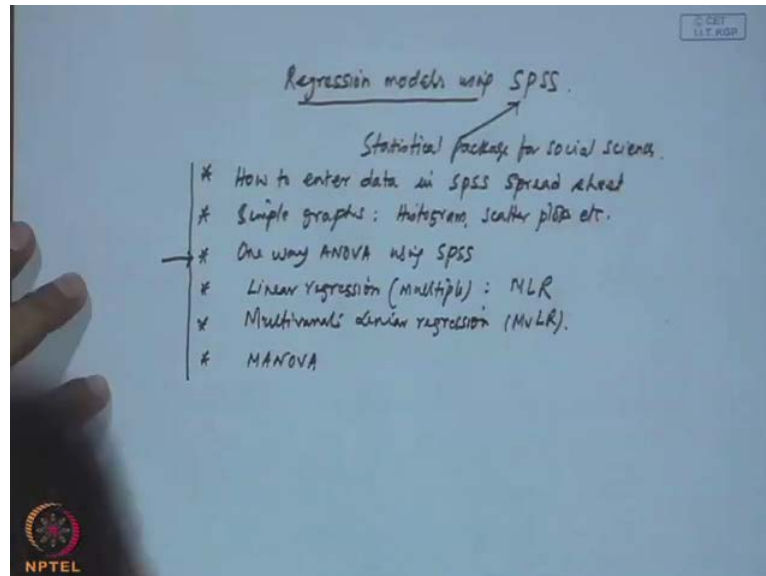 © CET
I.I.T. KGP
Regression models using SPSS.
Statistical package for social science.
* How to enter data in SPSS Spread sheet
* Simple graphs: Histogram, scatter plots etc.
* One way ANOVA using SPSS
* Linear regression (multiple): MLR
* Multivariate linear regression (MvLR).
* MANOVA
NPTEL